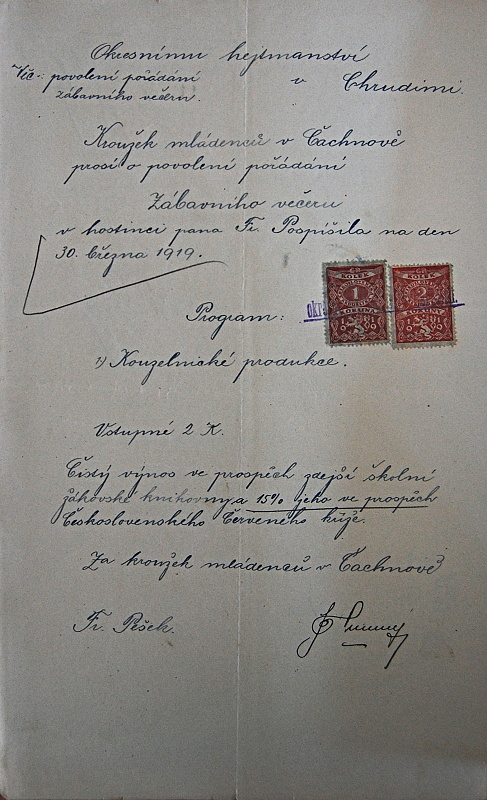 Okresnímu hejtmanství
v Chrudimi.
Věc: povolení pořádání
zábavního večeru.
Kroužek mládenců v Čachnově
prosí o povolení pořádání
Zábavního večeru
v hostinci pana Fr. Pospíšila na den
30. března 1919.
KOLEK
1
KORUNA
KOLEK
2
KORUNY
Program:
1) Kouzelnické produkce.
Vstupné 2 K.
Čistý výnos ve prospěch zdejší školní
žákovské knihovny a 15% jeho ve prospěch
Československého Červeného kříže.
Za kroužek mládenců v Čachnově
Fr. Pešek.